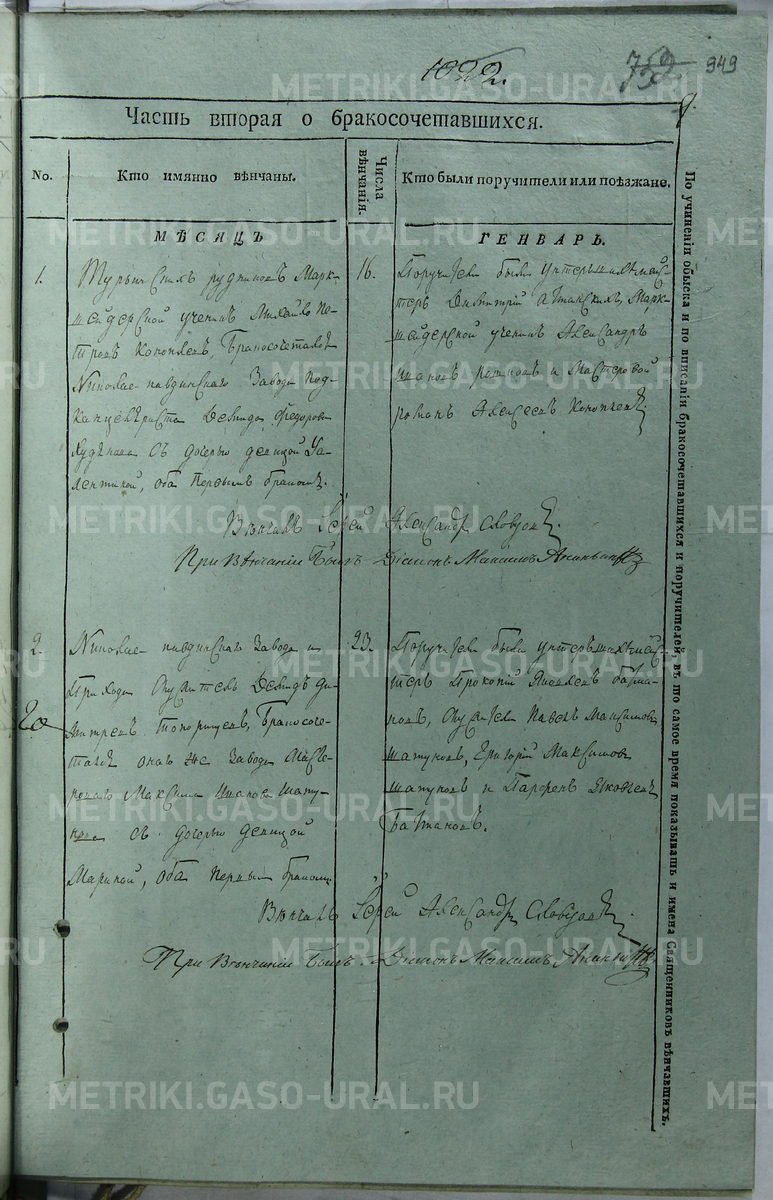 1822.
752 949
Часть вторая о бракосочетавшихся.
No.
Кто имянно вѣнчаны.
Числа вѣнчанія.
Кто были поручители или поѣзжане.
МѢСЯЦЪ
ГЕНВАРЬ.
1.
Турьинскихъ рудниковъ Марк-
шейдерской ученикъ Михайло Пе-
тровъ Коноплевъ, Бракосочетался
Николае-павдинскаго Завода Под-
канцеляриста Федорова
съ дочерью девицой Ва-
лентиной, оба Первымъ бракомъ.
16.
Поручители были унтершихтмейс-
теръ Димитрий Марк-
шейдерской ученикъ Александръ
и Мастеровой
Романъ Алексеевъ
Вѣнчалъ Іерей Александръ Словцовъ
При Вѣнчаніи былъ Діаконъ Максимъ
2.
20
Николае-павдинскаго Завода и
Прихода Служитель Давидъ Ди-
митревъ Топорищевъ, Бракосоче-
тался онаго же Завода Масте-
роваго Максима Иванова Шату-
нова съ дочерью девицой
Мариной, оба первымъ бракомъ.
23.
Поручители были унтершихтмейс-
теръ Прокопій Башма-
ковъ, Служители Павелъ Максимовъ
Шатуновъ, Григорий Максимовъ
Шатуновъ и Парфенъ Яковлевъ
Вѣнчалъ Іерей Александръ Словцовъ
При Вѣнчаніи былъ Діаконъ Максимъ
По учиненіи обыска и по вписаніи бракосочетавшихся и поручителей, въ то самое время показывать и имена Священниковъ вѣнчавшихъ.
METRIKI.GASO-URAL.RU